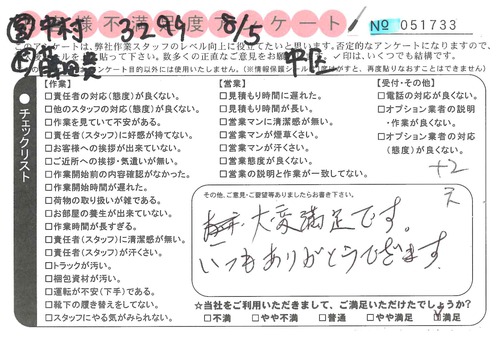 お客様不満足度アンケート № 051733
中村 3299 8/5
このアンケートは、弊社作業スタッフのレベル向上に役立てたいと思います。否定的なアンケートになりますので、
中区
【作業】
□責任者の対応(態度)が良くない。
□他のスタッフの対応(態度)が良くない。
□作業を見ていて不安がある。
□責任者(スタッフ)に好感が持てない。
□お客様への挨拶が出来ていない。
□ご近所への挨拶・気遣いが無い。
□作業開始前の内容確認がなかった。
□作業開始時間が遅れた。
□荷物の取り扱いが雑である。
□お部屋の養生が出来ていない。
□作業時間が長すぎる。
□責任者(スタッフ)に清潔感が無い。
□責任者(スタッフ)が汗くさい。
□トラックが汚い。
□梱包資材が汚い。
□運転が不安(下手)である。
□靴下の履き替えをしてない。
□スタッフにやる気がみられない。
【営業】
□見積もり時間に遅れた。
□見積もり時間が長い。
□営業マンに清潔感が無い。
□営業マンが煙草くさい。
□営業マンが汗くさい。
□営業態度が良くない。
□営業の説明と作業が一致してない。
【受付・その他】
□電話の対応が良くない。
□オプション業者の説明
・作業が良くない。
□オプション業者の対応
(態度)が良くない。
チェックリスト
+2
その他、ご意見・ご要望等ありましたらお書き下さい。
大変満足です。
いつもありがとうございます
☆当社をご利用いただきまして、ご満足いただけたでしょうか?
□不満 □やや不満 □普通 □やや満足 □満足